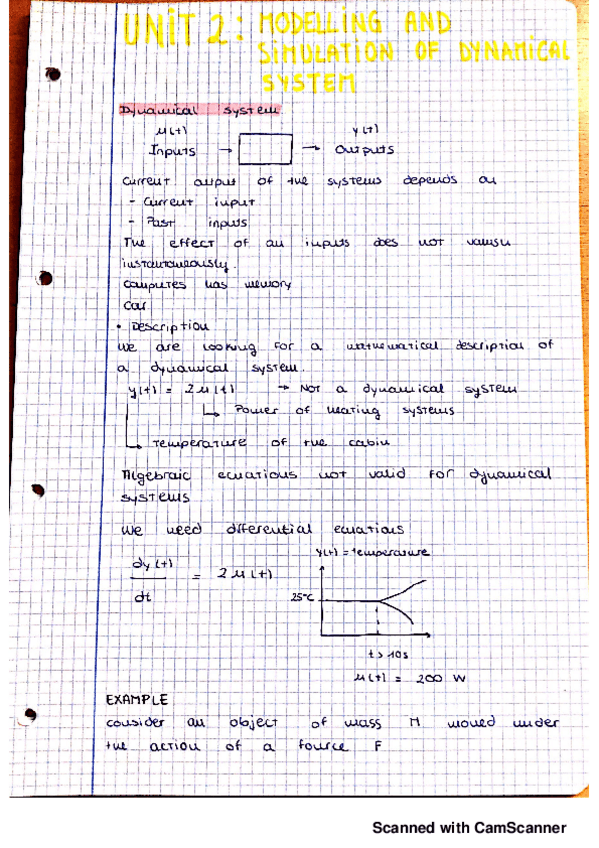 UNiT 2: MODELLING AND
SiMULATION OF DYNAMICAL
SYSTEM
Dynamical system
u(t) y(t)
Inputs → → Outputs
Current output of the systems depends on
- Current input
- Past inputs
The effect of an inputs does not vanish
instantaneously.
Computes has memory
Car
• Description
We are looking for a mathematical description of
a dynamical system.
y(t) = 2u(t) → Not a dynamical system
↳ Power of heating systems
↳ Temperature of the cabin
Algebraic ecuations not valid for dynamical
systems
We need differential ecuations
y(t) = temperature
dy(t)
dt
= 2u(t)
25°C
t > 10s
u(t) = 200 W
EXAMPLE
Consider an object of mass M moved under
the action of a fource F
Scanned with CamScanner